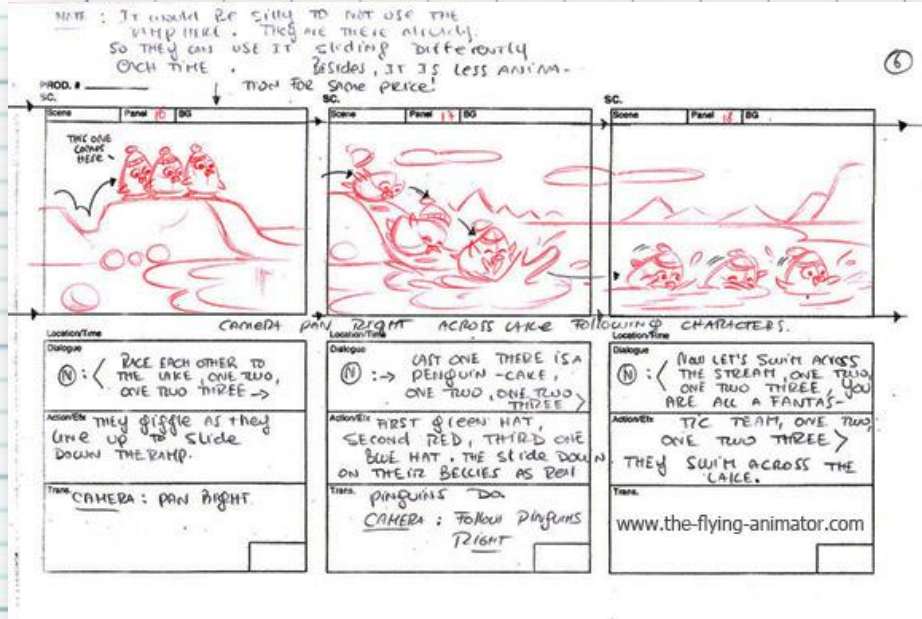 NOTE : IT would BE SILLY TO NOT USE THE
RAMP HERE. THEY ARE THERE ALREADY.
SO THEY CAN USE IT SLIDING DIFFERENTLY
EACH TIME. BESIDES, IT IS LESS ANIMA-
TION FOR SAME PRICE!
6
PROD. #
SC.
SC.
SC.
Scene Panel 16 BG
Scene Panel 17 BG
Scene Panel 18 BG
THIS ONE
COMES
HERE
CAMERA PAN RIGHT ACROSS LAKE FOLLOWING CHARACTERS.
Location/Time
Location/Time
Location/Time
Dialogue
N : < RACE EACH OTHER TO
THE LAKE, ONE TWO,
ONE TWO THREE →
Action/Efx THEY GIGGLE AS THEY
LINE UP TO SLIDE
DOWN THE RAMP.
Trans. CAMERA : PAN RIGHT
Dialogue
N : → LAST ONE THERE IS A
PENGUIN - CAKE,
ONE TWO, ONE TWO
THREE >
Action/Efx FIRST GREEN HAT,
SECOND RED, THIRD ONE
BLUE HAT. THE SLIDE DOWN
ON THEIR BELLIES AS REAL
Trans. PINGUINS DO.
CAMERA : FOLLOW PINGUINS
RIGHT
Dialogue
N : < NOW LET'S SWIM ACROSS
THE STREAM, ONE TWO,
ONE TWO THREE, YOU
ARE ALL A FANTAS-
Action/Efx TIC TEAM, ONE TWO,
ONE TWO THREE >
THEY SWIM ACROSS THE
LAKE.
Trans.
www.the-flying-animator.com